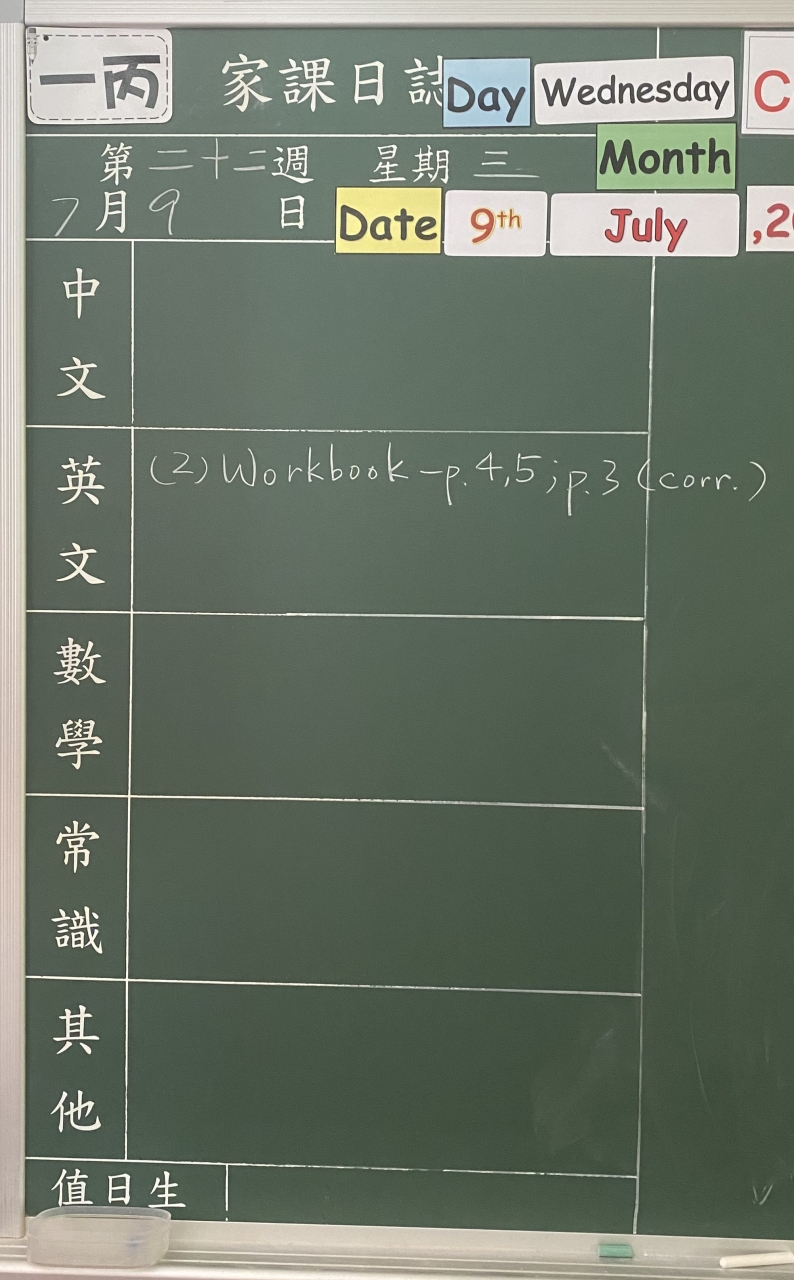 一丙 家課日誌 Day Wednesday C
第二十二週 星期三 Month
7月9日 Date 9th July ,2
中文
英文 (2) Workbook - p.4,5; p.3 (corr.)
數學
常識
其他
值日生